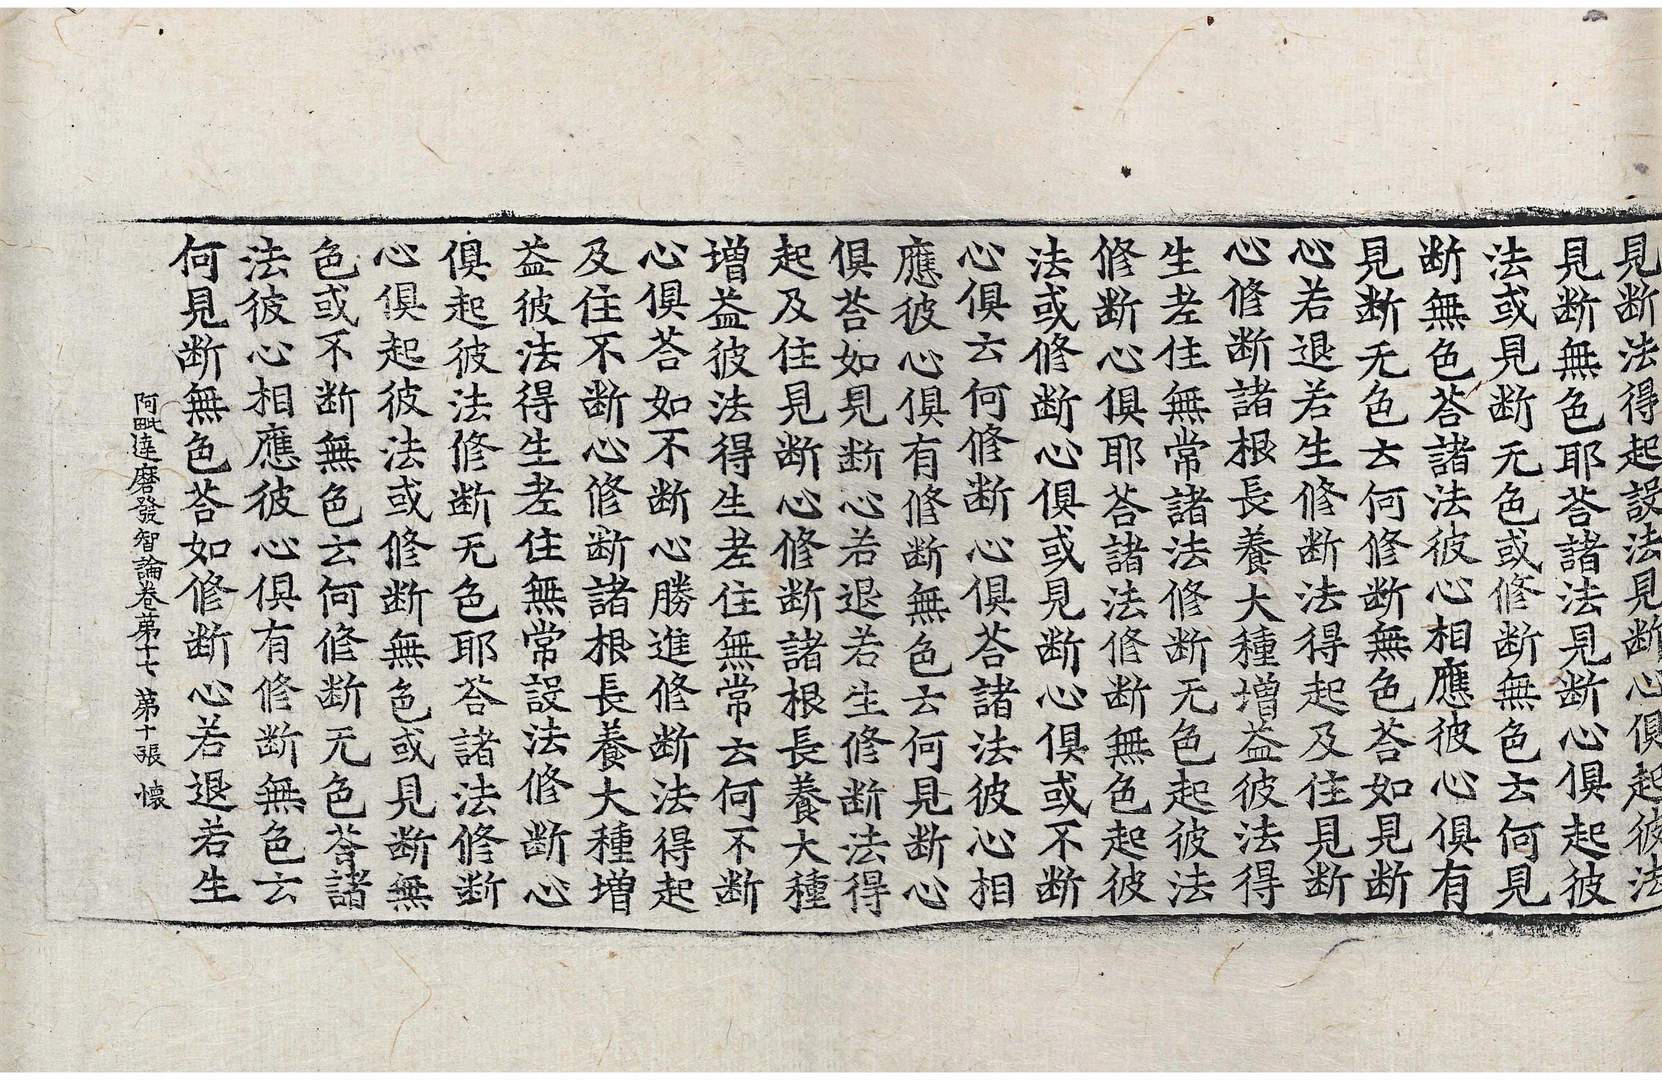 見断法得起設法見断心俱起彼法
見断無色耶荅諸法見断心俱起彼
法或見断无色或修断無色云何見
断無色荅諸法彼心相應彼心俱有
見断无色云何修断無色荅如見断
心若退若生修断法得起及住見断
心修断諸根長養大種增益彼法得
生老住無常諸法修断无色起彼法
修断心俱耶荅諸法修断無色起彼
法或修断心俱或見断心俱或不断
心俱云何修断心俱荅諸法彼心相
應彼心俱有修断無色云何見断心
俱荅如見断心若退若生修断法得
起及住見断心修断諸根長養大種
增益彼法得生老住無常云何不断
心俱荅如不断心勝進修断法得起
及住不断心修断諸根長養大種增
益彼法得生老住無常設法修断心
俱起彼法修断无色耶荅諸法修断
心俱起彼法或修断無色或見断無
色或不断無色云何修断无色荅諸
法彼心相應彼心俱有修断無色云
何見断無色荅如修断心若退若生
阿毗達磨發智論卷苐十七 苐十張 懷